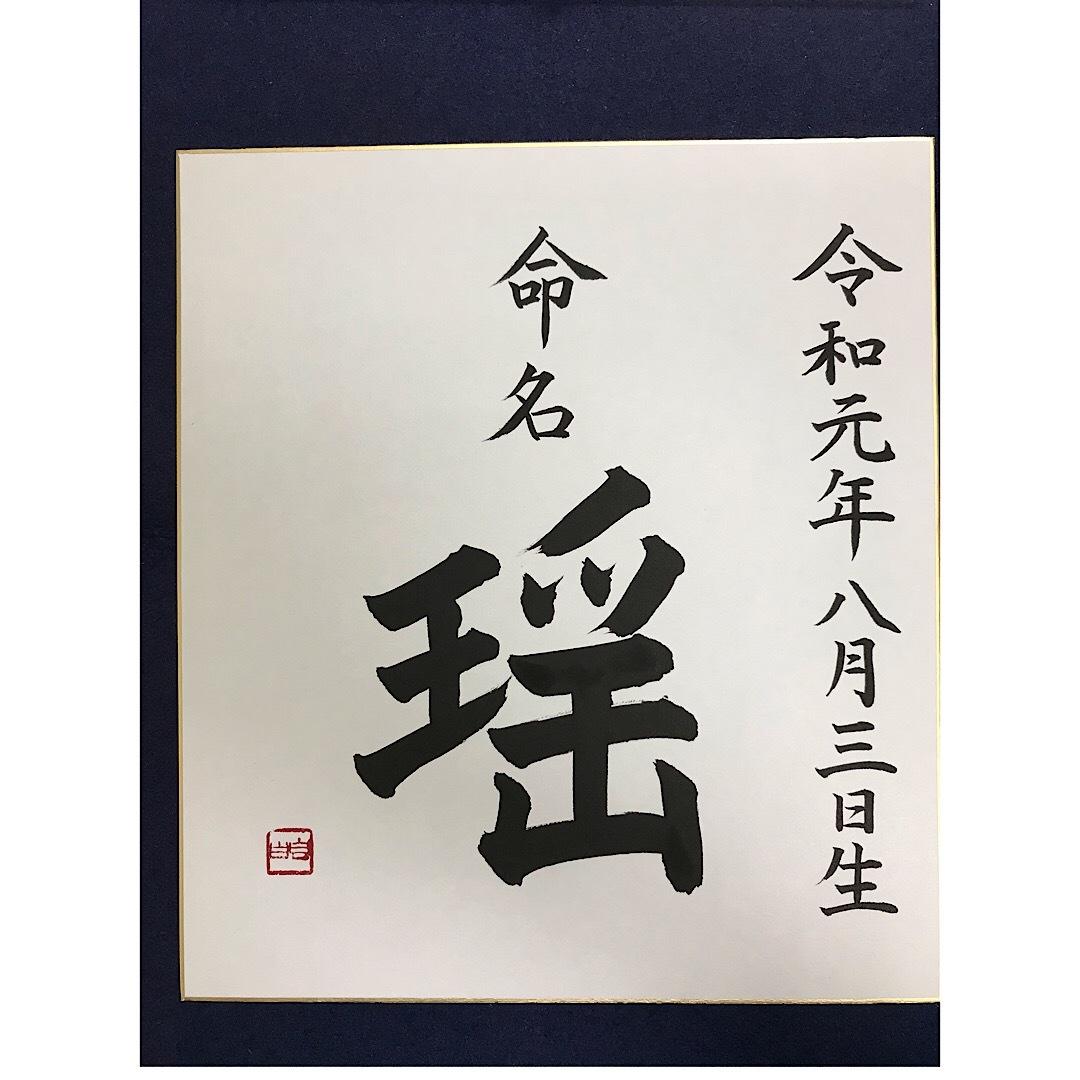 令和元年八月三日生
命名
瑶